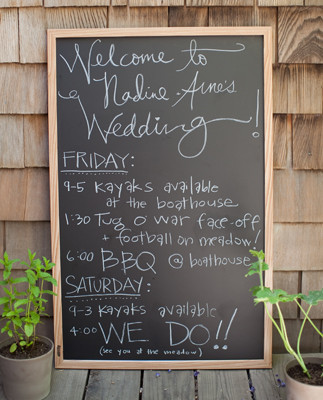 Welcome to
Nadine + Arne's
Wedding!
FRIDAY:
9-5 Kayaks available
at the boathouse
1:30 Tug o' war face-off
+ football on meadow!
6:00 BBQ @ boathouse
SATURDAY:
9-3 kayaks available
4:00 WE DO!!
(see you at the meadow)